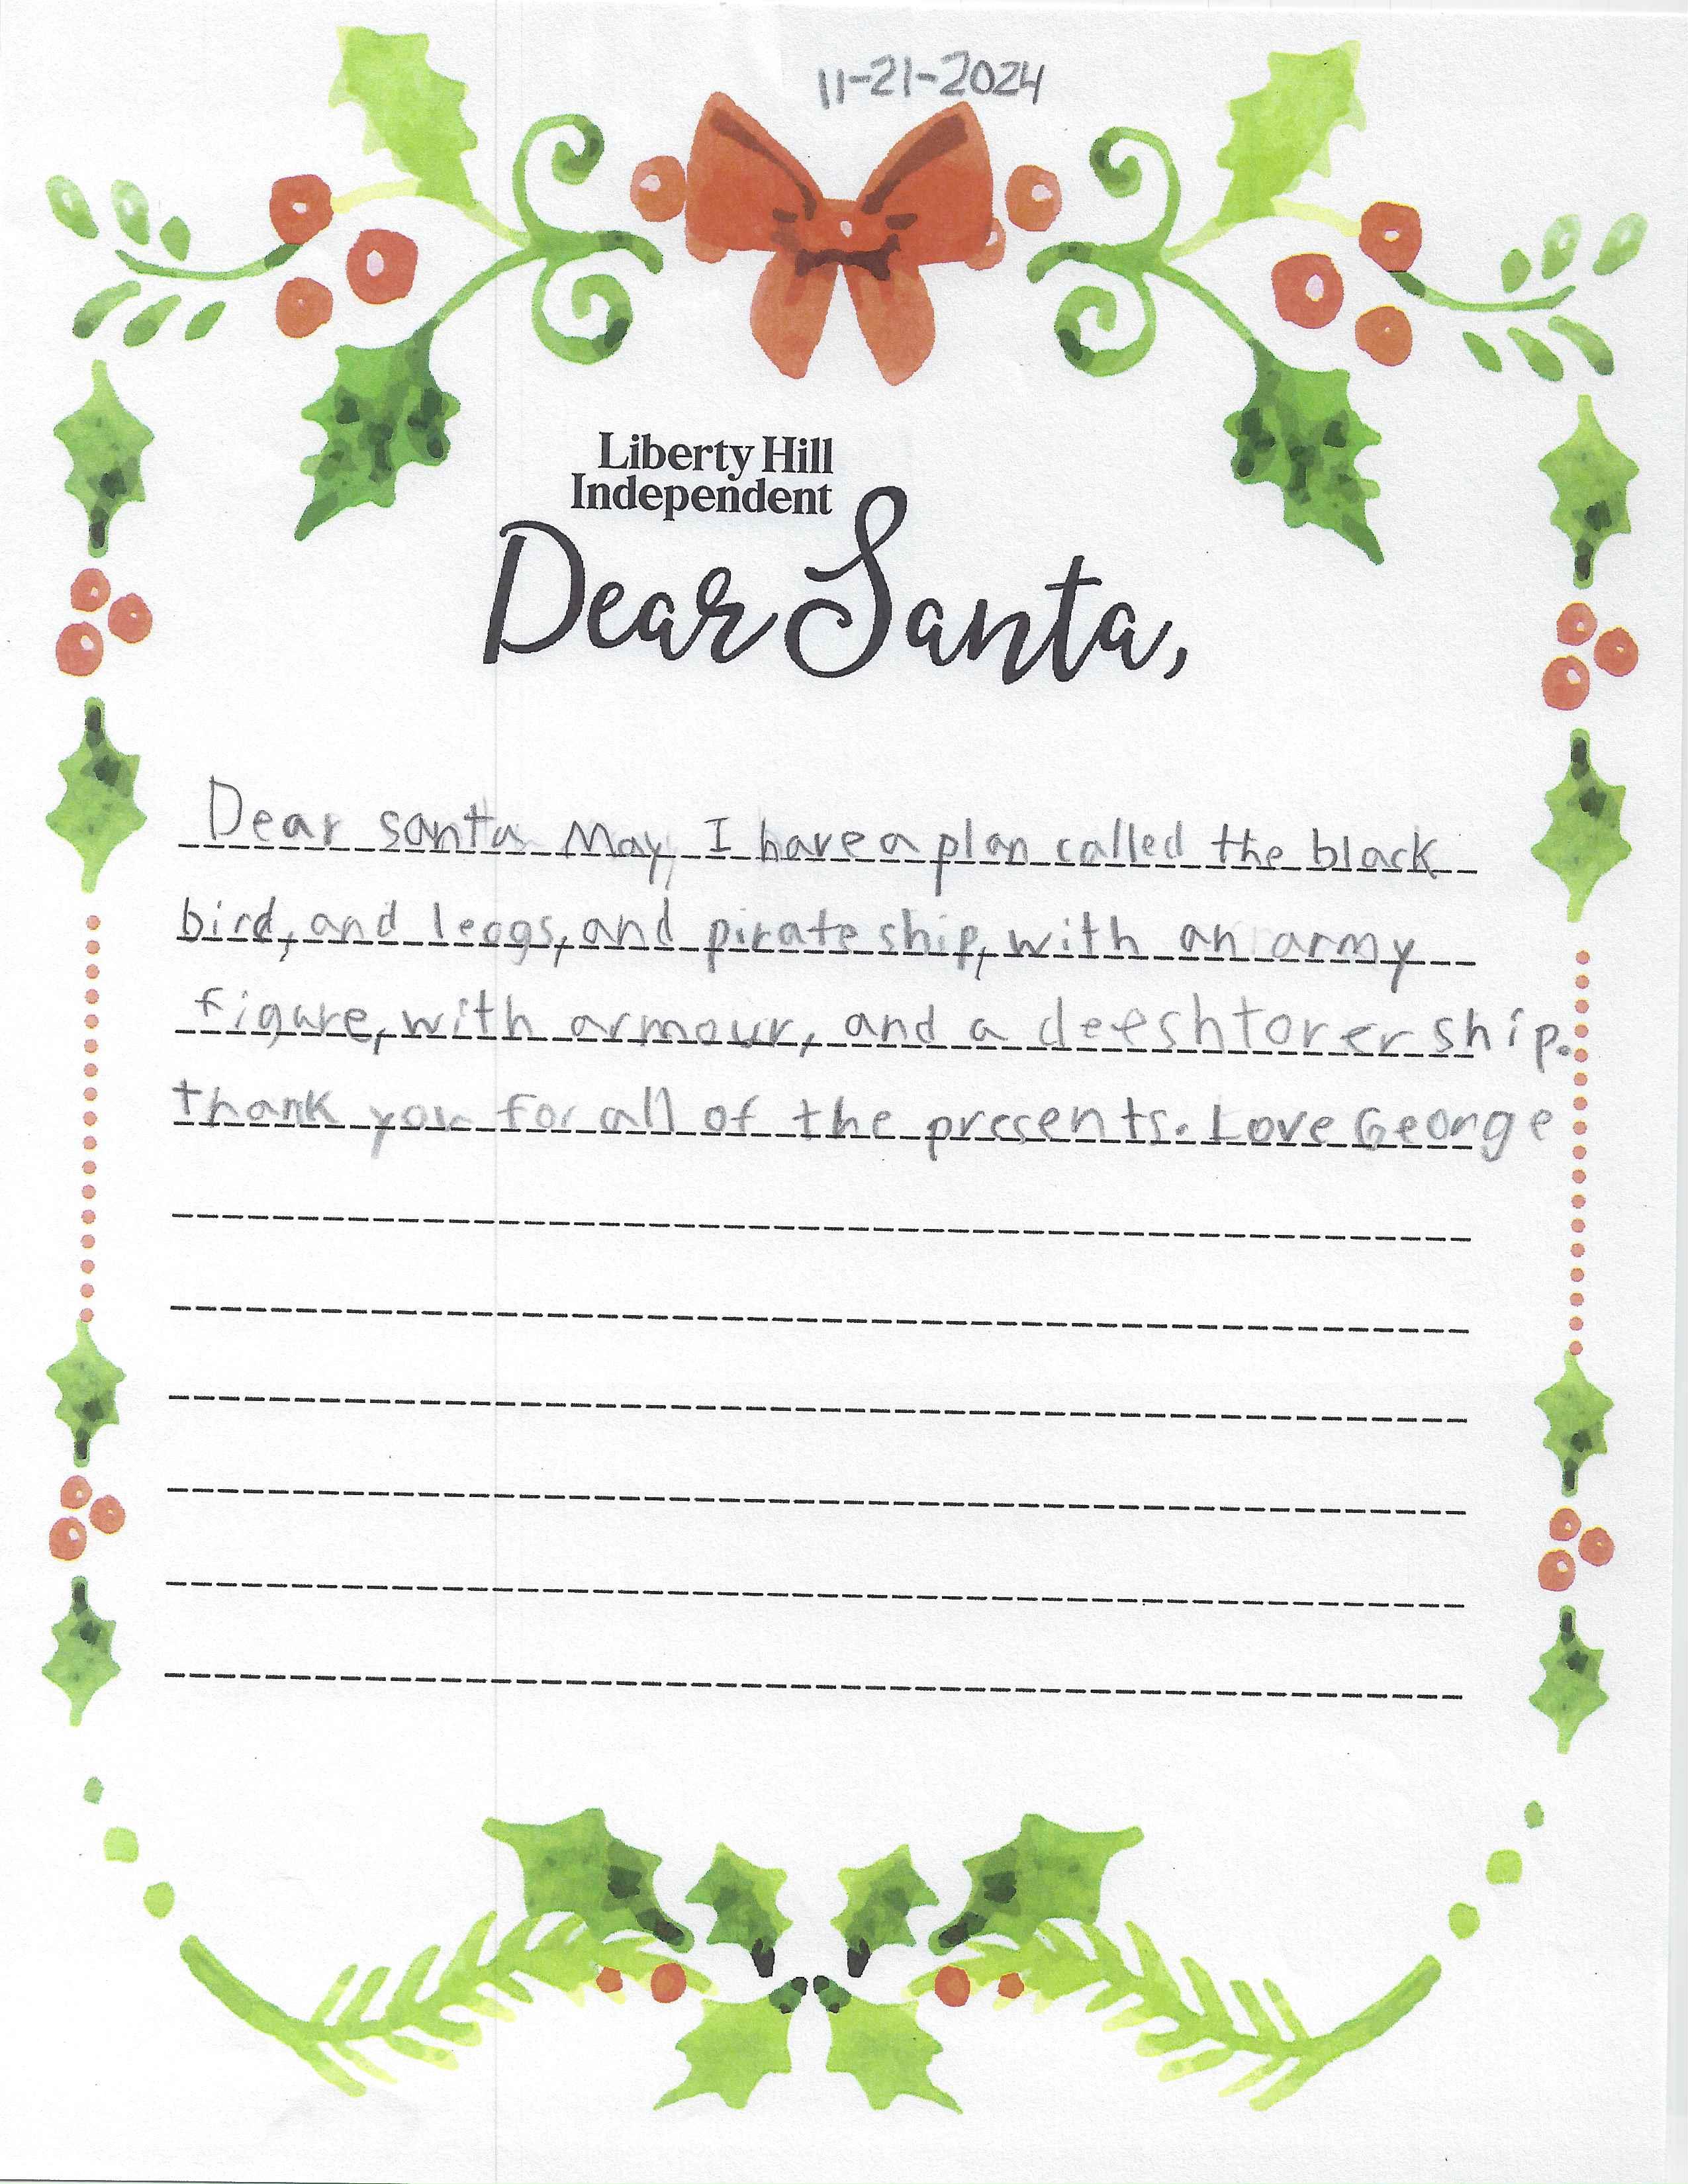 11-21-2024
Liberty Hill
Independent
Dear Santa,
Dear santa May I have a plan called the black
bird, and leggs, and pirate ship, with an army
figure, with armour, and a deeshtorer ship.
thank you for all of the presents. Love George